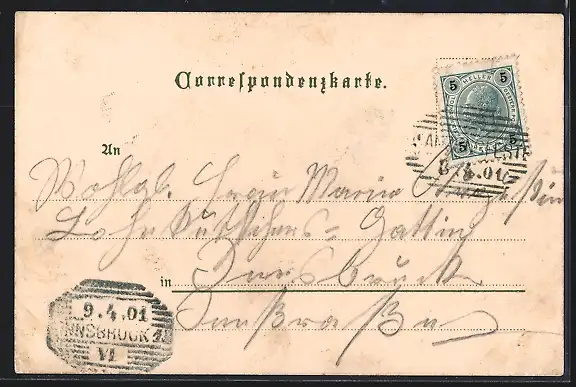 Correspondenzkarte.
5 HELLER 5
5 5
8.4.01
An
Wohlgb. Frau Maria
Lohnkutschers= Gattin
in Innsbruck
9.4.01
INNSBRUCK
VI